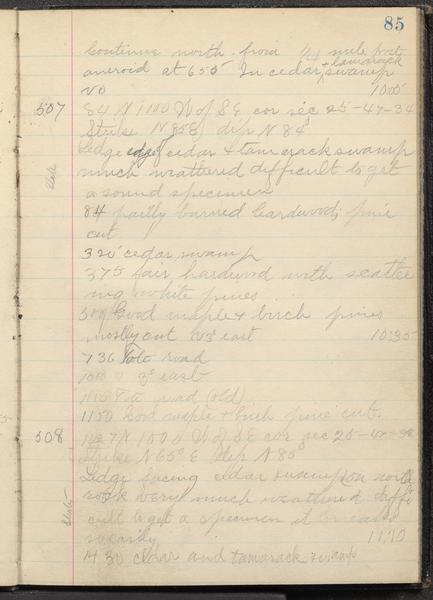 85
Continue north from 1/4 mile post
aneroid at 655 In cedar + tamarack swamp
V0 1005
507 84 N 1100 W of S E cor sec 25-47-34
Strike N 85 E dip N 84°
Ledge edge of cedar + tamarack swamp
Slate
much weathered difficult to get
a sound specimen
84 partly burned hardwood, pine
cut
320 cedar swamp
375 fair hardwood with scatter
ing white pines
Good maple + birch pines
mostly cut V3° east 10:35
736 Tote road
3° east
Tote road (old)
1150 Good maple + birch pine cut.
508 N 1500 W of S E cor sec 25-47-
Strike N 65° E dip N 85°
Ledge facing cedar swamp on north
rock very much weathered diffi
Slate
cult to get a specimen it breaks
so easily 11:10
1430 cedar and tamarack swamp